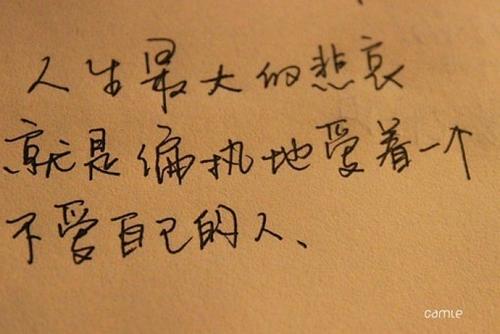 人生最大的悲哀
就是偏执地爱着一个
不爱自己的人、
camle